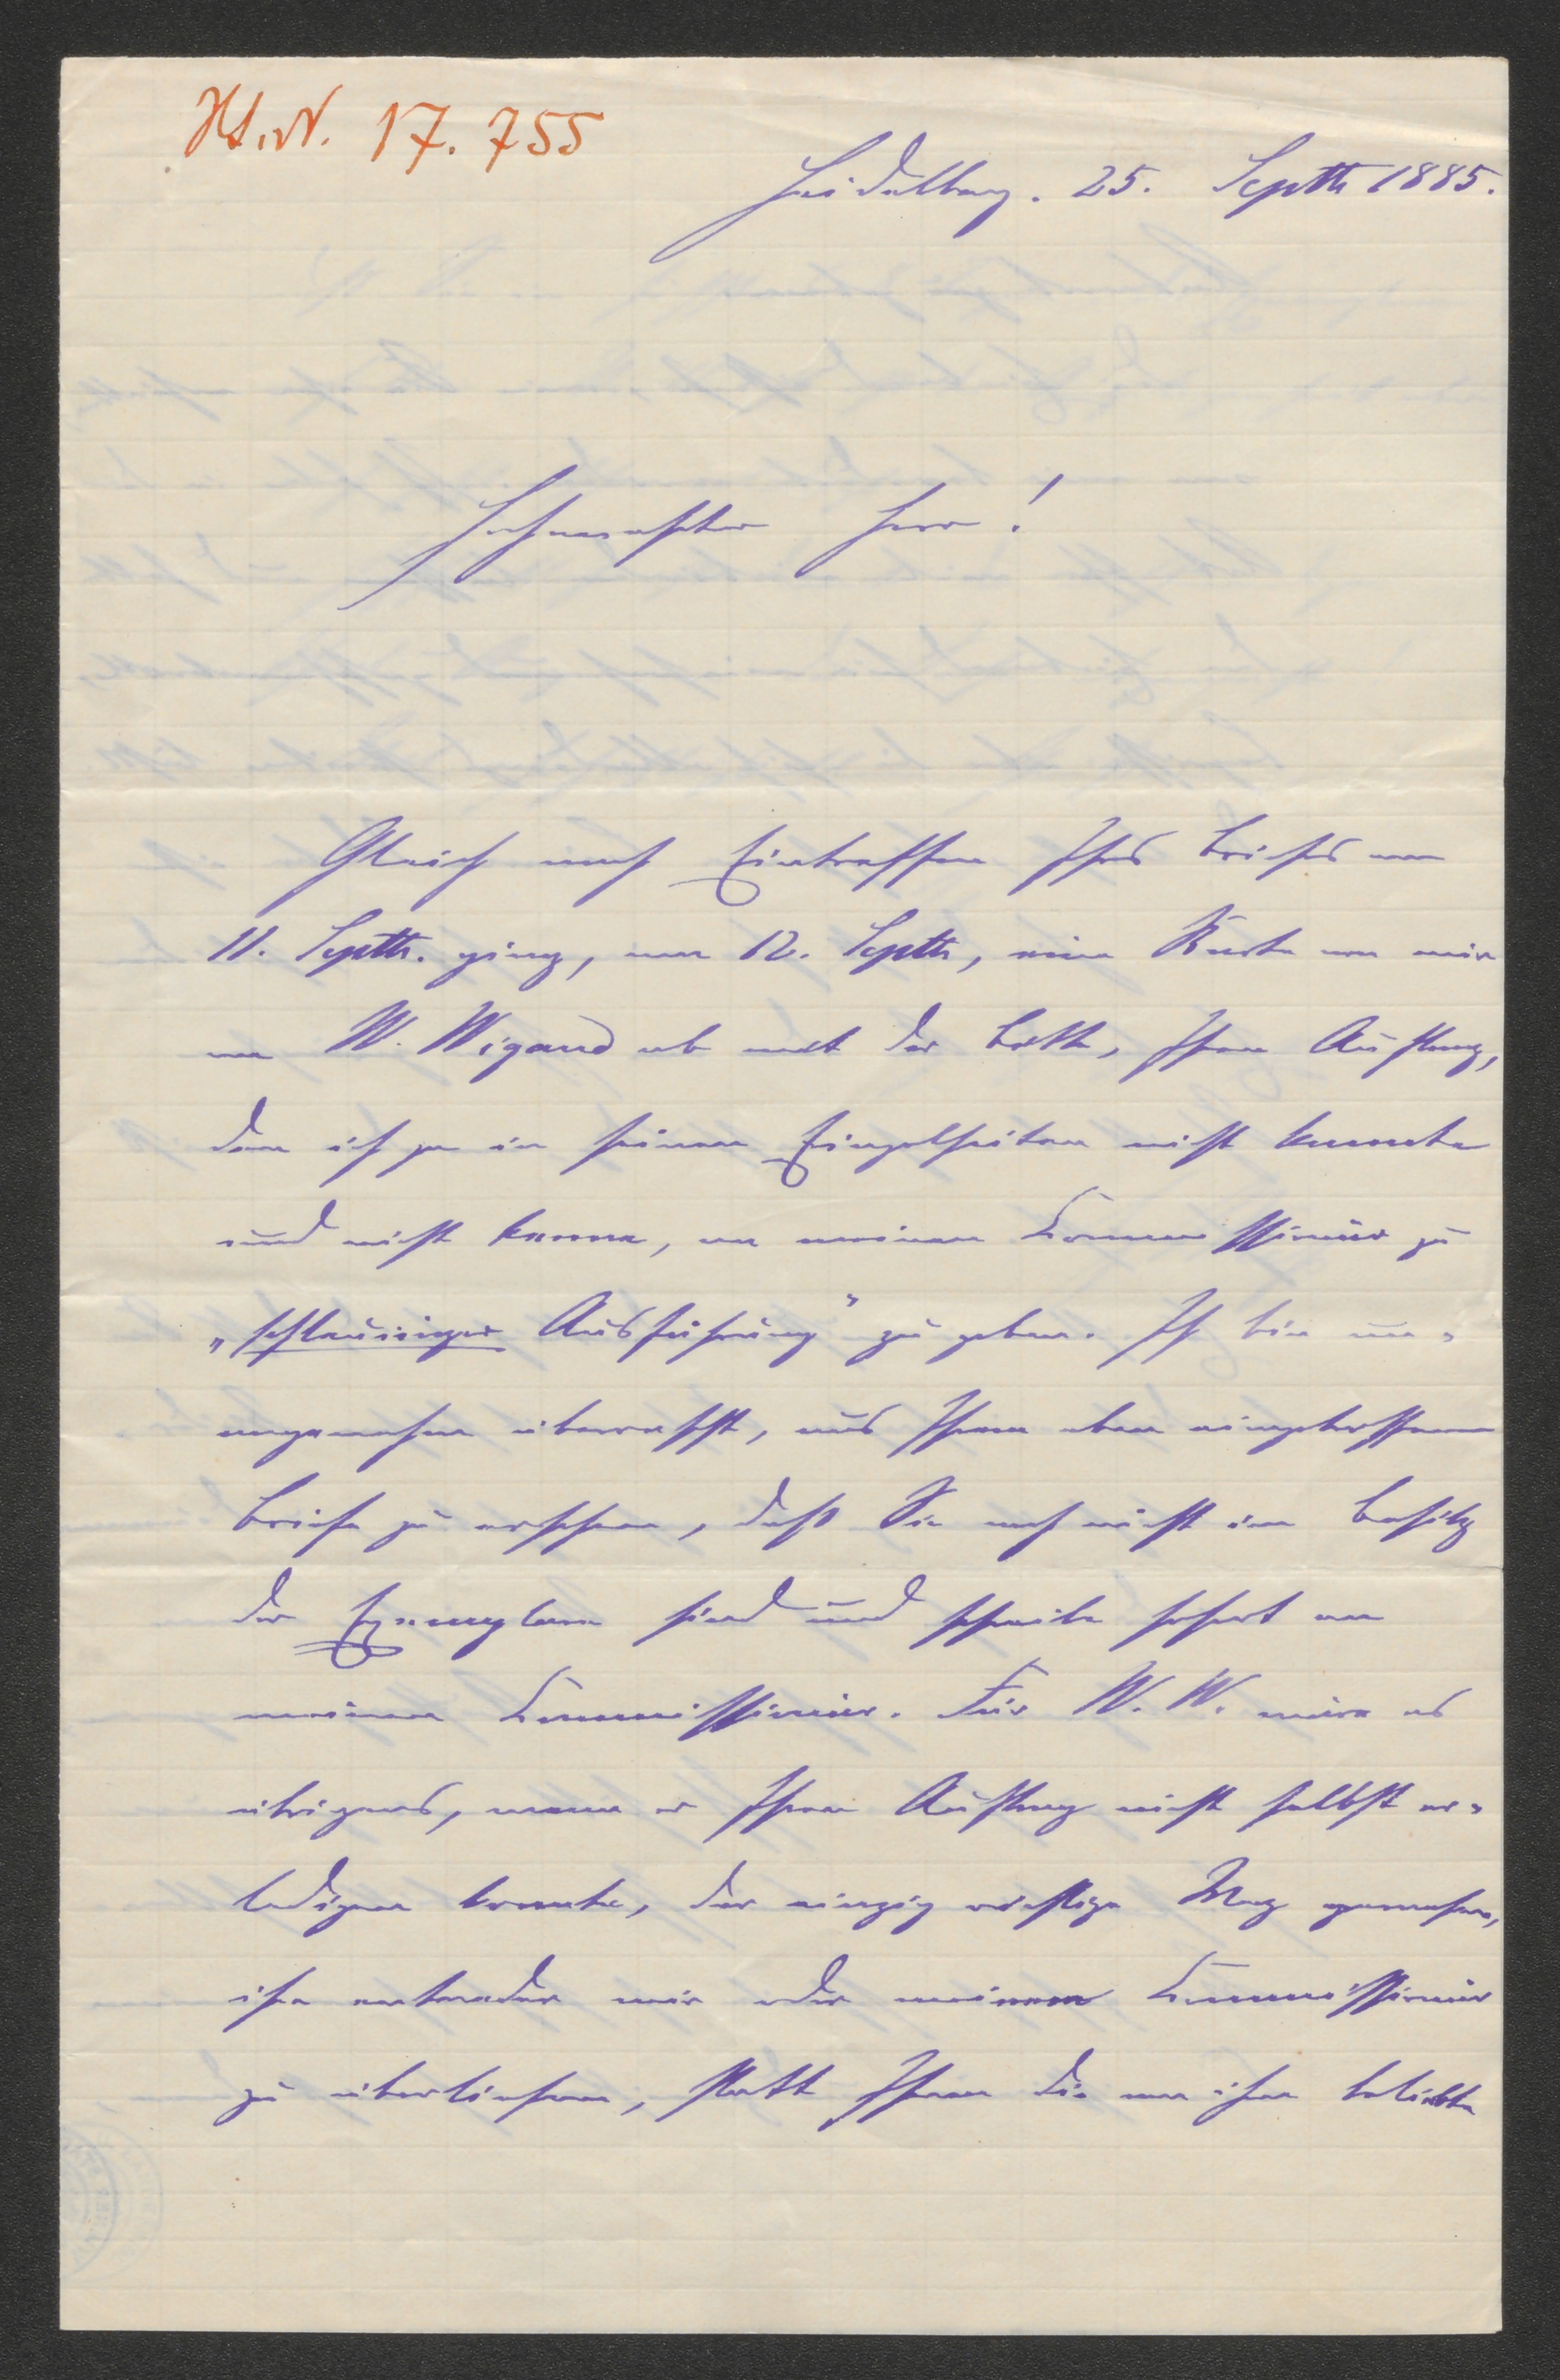 Hds. N. 17.755
Heidelberg. 25. Septbr 1885.
Hochverehrter Herr!
Gleich nach Eintreffen Ihres Briefes vom
11. Septbr. ging, am 12. Septbr, eine Karte von mir
an W. Wigand ab mit der Bitte, Ihren Auftrag,
den ich ja in seinen Einzelheiten nicht kannte
und nicht kenne, an meinen Kommissionär zu
„schleuniger Ausführung" zu geben. Ich bin un-
angenehm überrascht, aus Ihrem eben eingetroffenen
Briefe zu ersehen, daß Sie noch nicht im Besitz
der Exemplare sind und schreibe sofort an
meinen Kommissionär. Für W. W. wäre es
übrigens, wenn er Ihren Auftrag nicht selbst er-
ledigen konnte, der einzig richtige Weg gewesen,
ihn entweder mir oder meinem Kommissionär
zu überliefern, statt Ihnen die von ihm beliebte